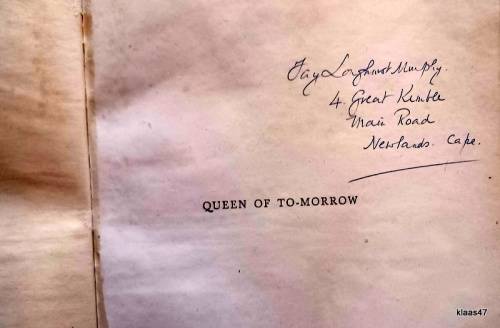 Fay Longhurst Murphy.
4. Great Kimble
Main Road
Newlands. Cape.
QUEEN OF TO-MORROW
klaas47